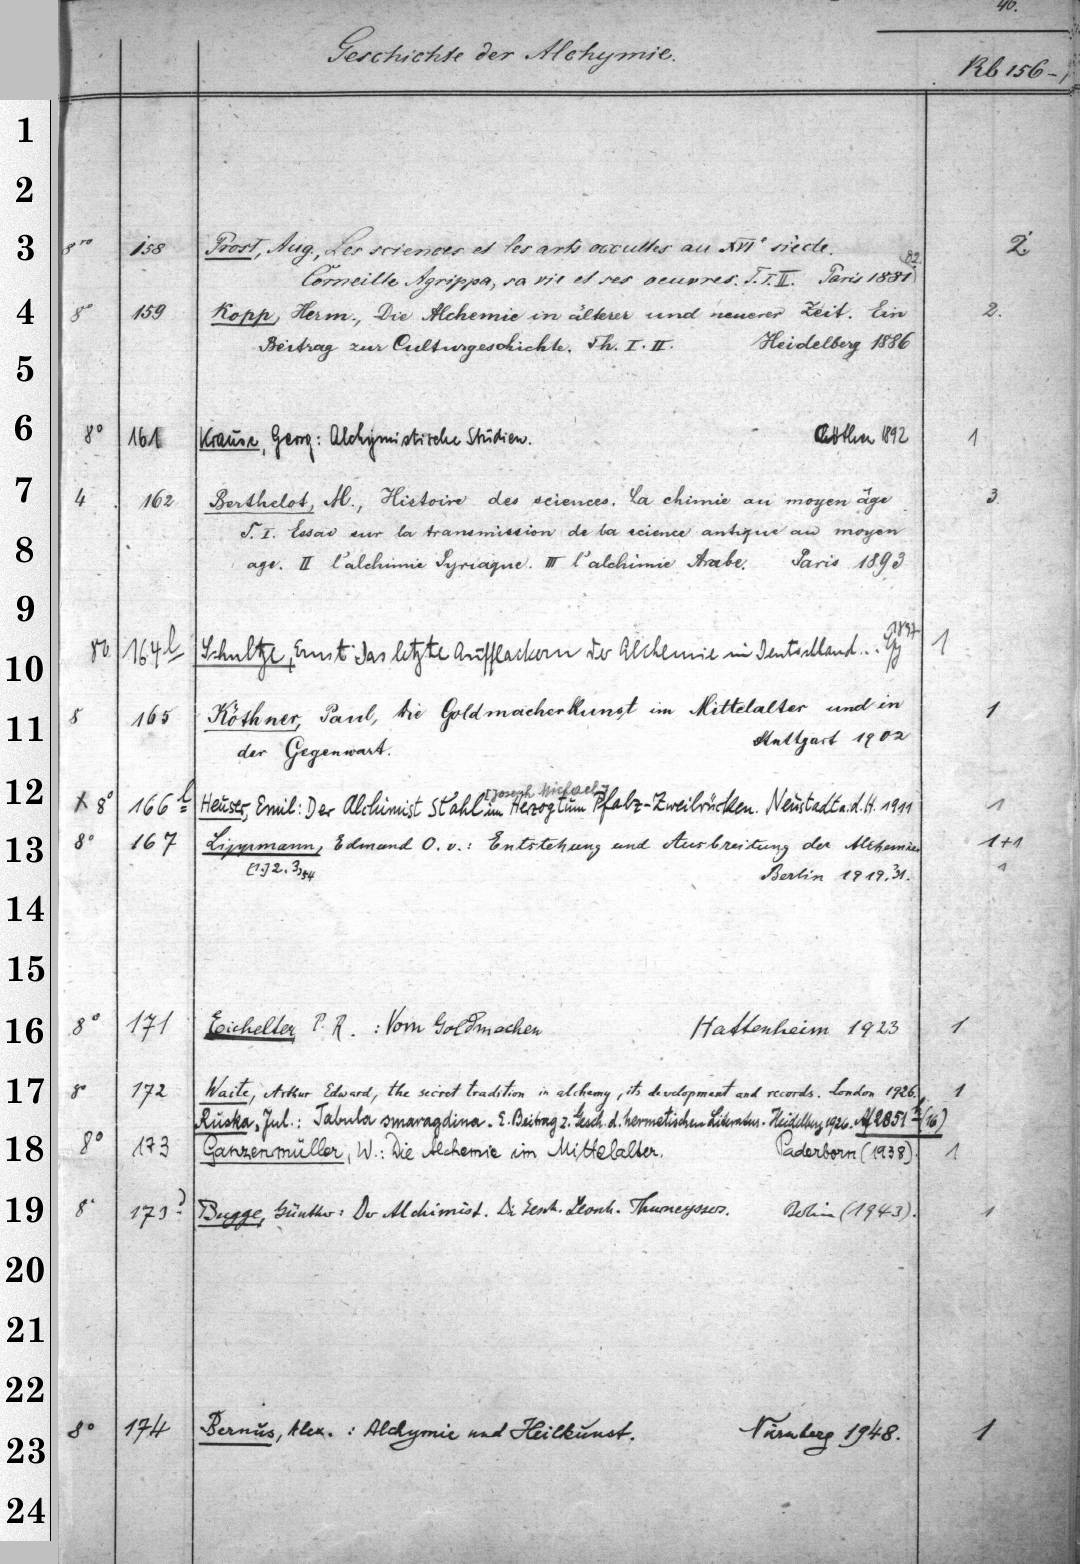 40.
Geschichte der Alchymie.
Kb 156-
1
2
3 8vo 158 Prost, Aug., Les sciences et les arts occultes au XVIe siècle. 2
82
Corneille Agrippa, sa vie et ses oeuvres. T. I. II. Paris 1881
4 8° 159 Kopp, Herm., Die Alchemie in älterer und neuerer Zeit. Ein 2.
5 Beitrag zur Culturgeschichte. Th. I. II. Heidelberg 1886
6 8° 161 Krause, Georg: Alchymistische Studien. Cöthen 1892 1
7 4 162 Berthelot, M., Histoire des sciences. La chimie au moyen âge 3
8 T. I. Essai sur la transmission de la science antique au moyen
age. II l'alchimie Syriaque. III l'alchimie Arabe. Paris 1893
9
1897
10 80 164 b Schultze, Ernst Das letzte Aufflackern der Alchemie in Deutschland... Lpz 1
11 8 165 Köthner, Paul, Die Goldmacherkunst im Mittelalter und in 1
der Gegenwart. Stuttgart 1902
[Joseph Michael]
12 x 8° 166 b Heuser, Emil: Der Alchimist Stahl im Herzogtum Pfalz-Zweibrücken. Neustadt a. d. H. 1911 1
13 8° 167 Lippmann, Edmund O. v.: Entstehung und Ausbreitung der Alchemie. 1+1
[1.] 2. 3, 54 Berlin 1919. 31. 1
14
15
16 8° 171 Eichelter P. R. : Vom Goldmachen Hattenheim 1923 1
17 8° 172 Waite, Arthur Edward, the secret tradition in alchemy, its development and records. London 1926. 1
Ruska, Jul.: Tabula smaragdina. E. Beitrag z. Gesch. d. hermetischen Literatur. Heidelberg 1926. Af 2851 (16)
18 8° 173 Ganzenmüller, W.: Die Alchemie im Mittelalter. Paderborn (1938). 1
19 8° 173 Bugge, Günther: Der Alchimist. Die Gesch. Leonh. Thurneyssers. Berlin (1943). 1
20
21
22
23 8° 174 Bernus, Alex. : Alchymie und Heilkunst. Nürnberg 1948. 1
24